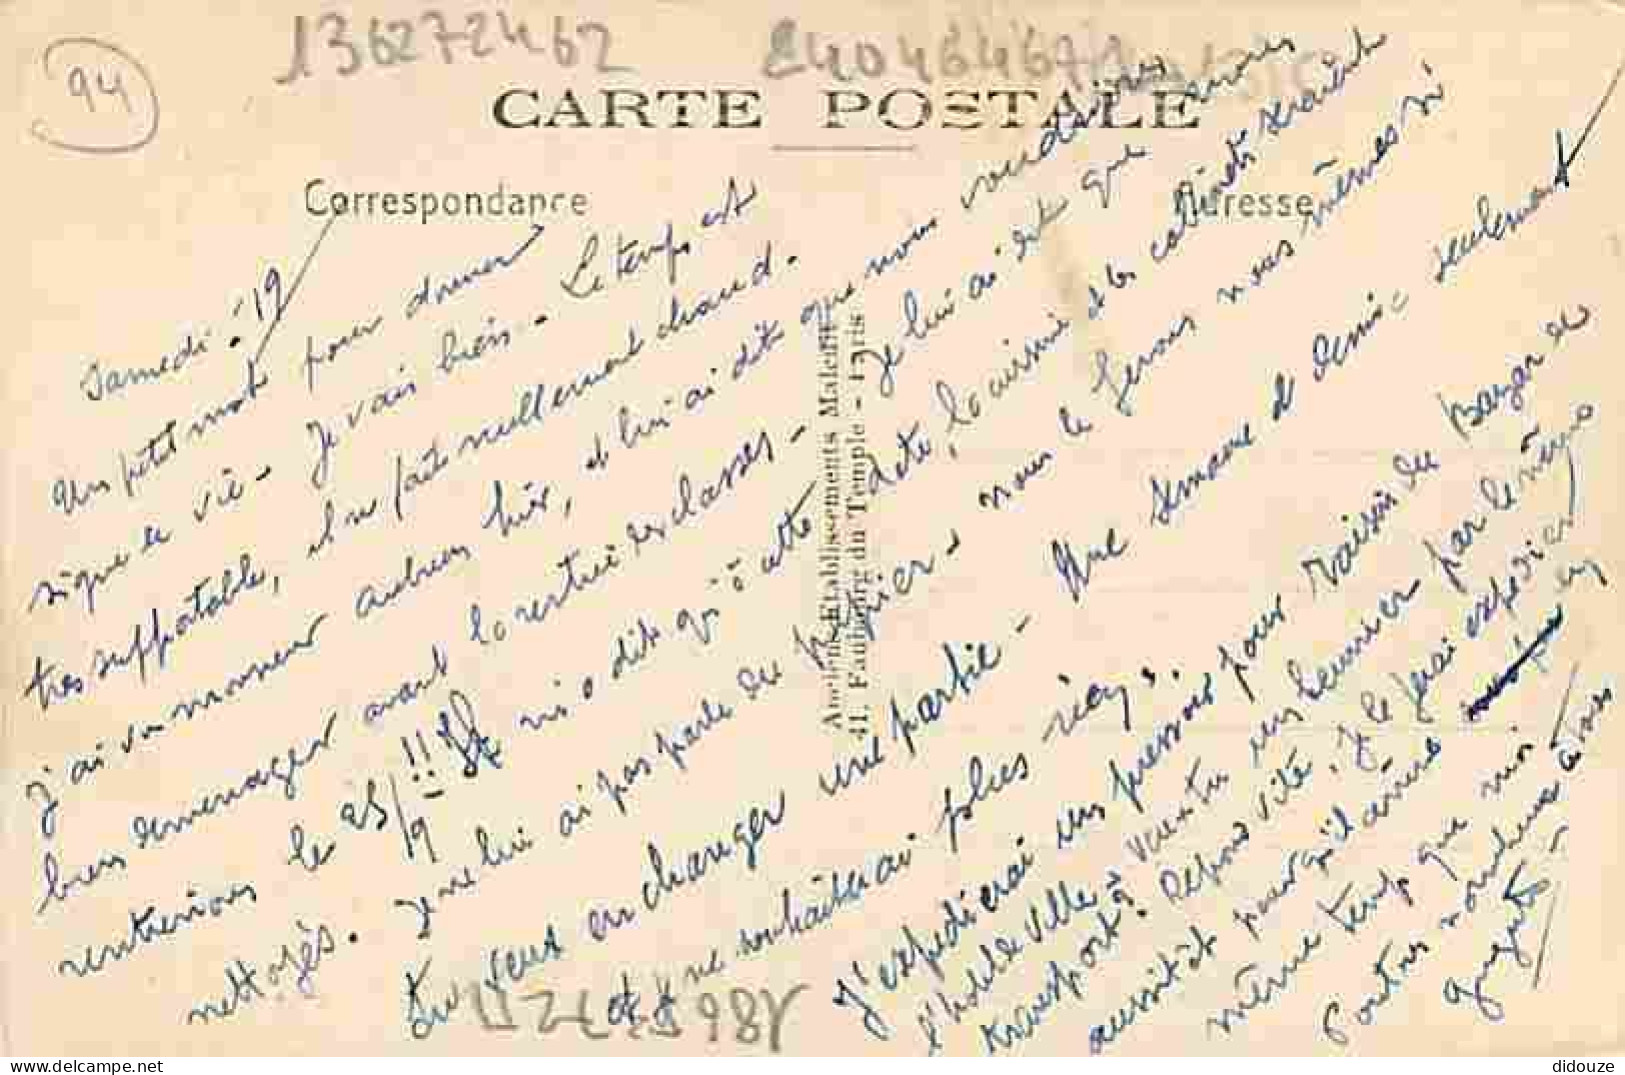 94
136272462
CARTE POSTALE
Correspondance
Adresse
Samedi 19
Un petit mot pour donner
signe de vie - Je vais bien - Le temps est
très supportable, il ne fait nullement chaud.
J'ai vu monsieur hier, et lui ai dit que nous voudrions
bien déménager avant la rentrée des classes - Je lui ai dit que nous
rentrerions le 25/9 !! Il m'a dit qu'à cette date, la cuisine et les cabinets seraient
nettoyés. Je ne lui ai pas parlé du papier - nous le ferons nous mêmes si
tu veux en changer une partie - Une semaine et demie seulement
et je ne souhaiterai plus rien.
J'expédierai un pressoir pour raisin du Bazar de
l'hôtel de ville à par le même
transport. Réponds vite. Je le ferai expédier
aussitôt pour qu'il arrive en
même temps que moi
à tous
Anciens Etablissements Malcuit
41, Faubourg du Temple - Paris
didouze